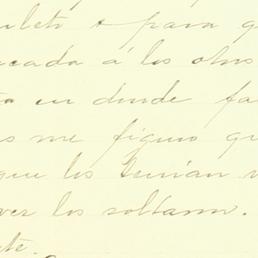 para q
cada á los otros
en donde fa
s me figuro qu
que los tenian
ver los soltaron.
te.